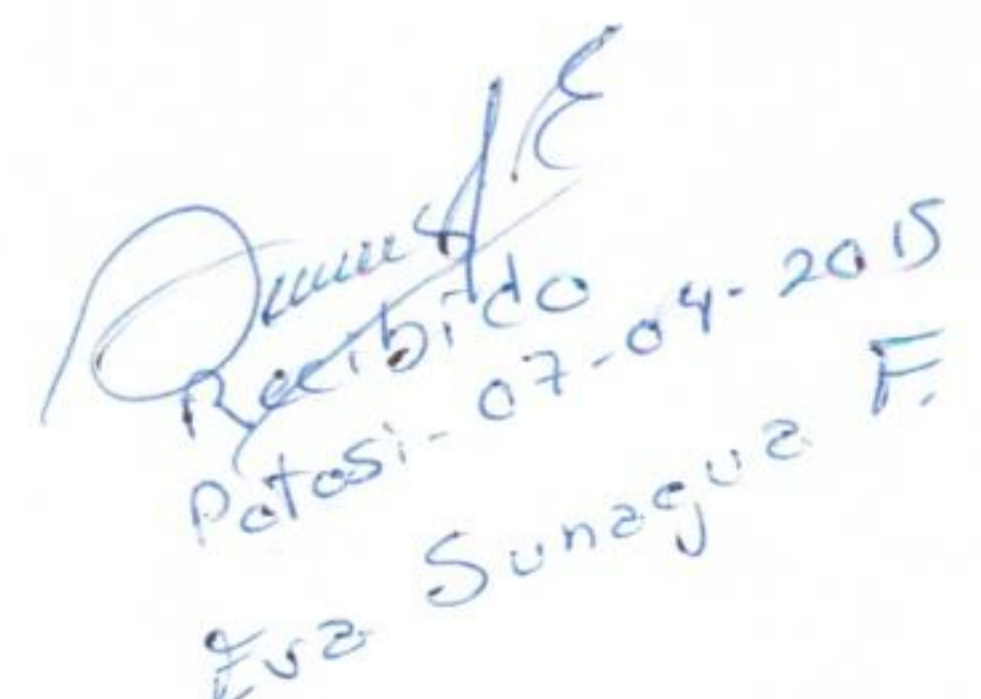 Recibido
Potosi - 07-04-2015
Eva Sunagua F.